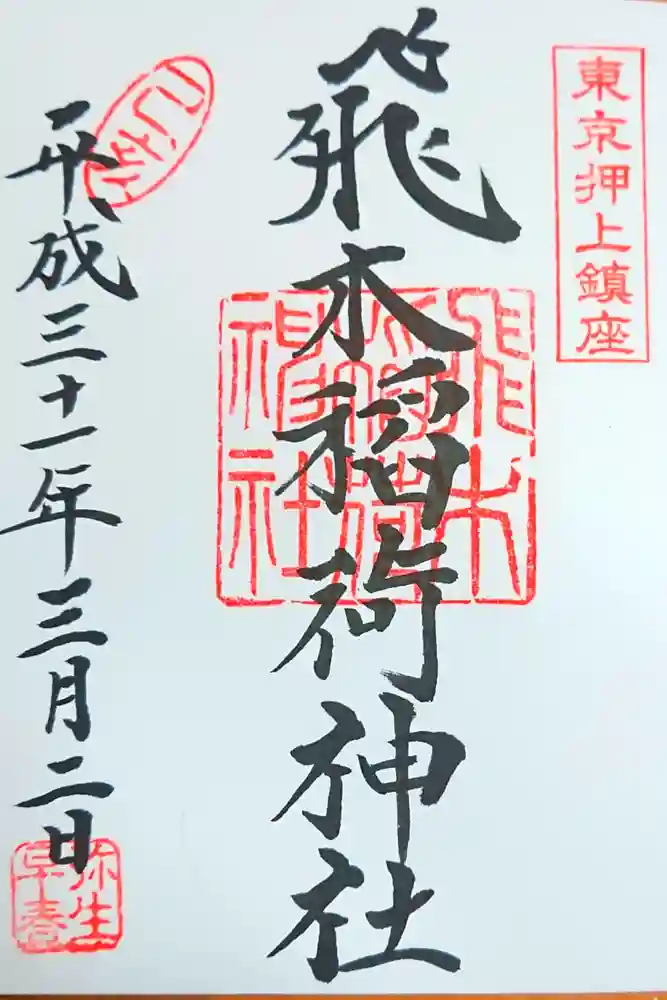 東京押上鎮座
飛木稲荷神社
飛木
稲荷
神社
平成三十一年三月二日
弥生
早春